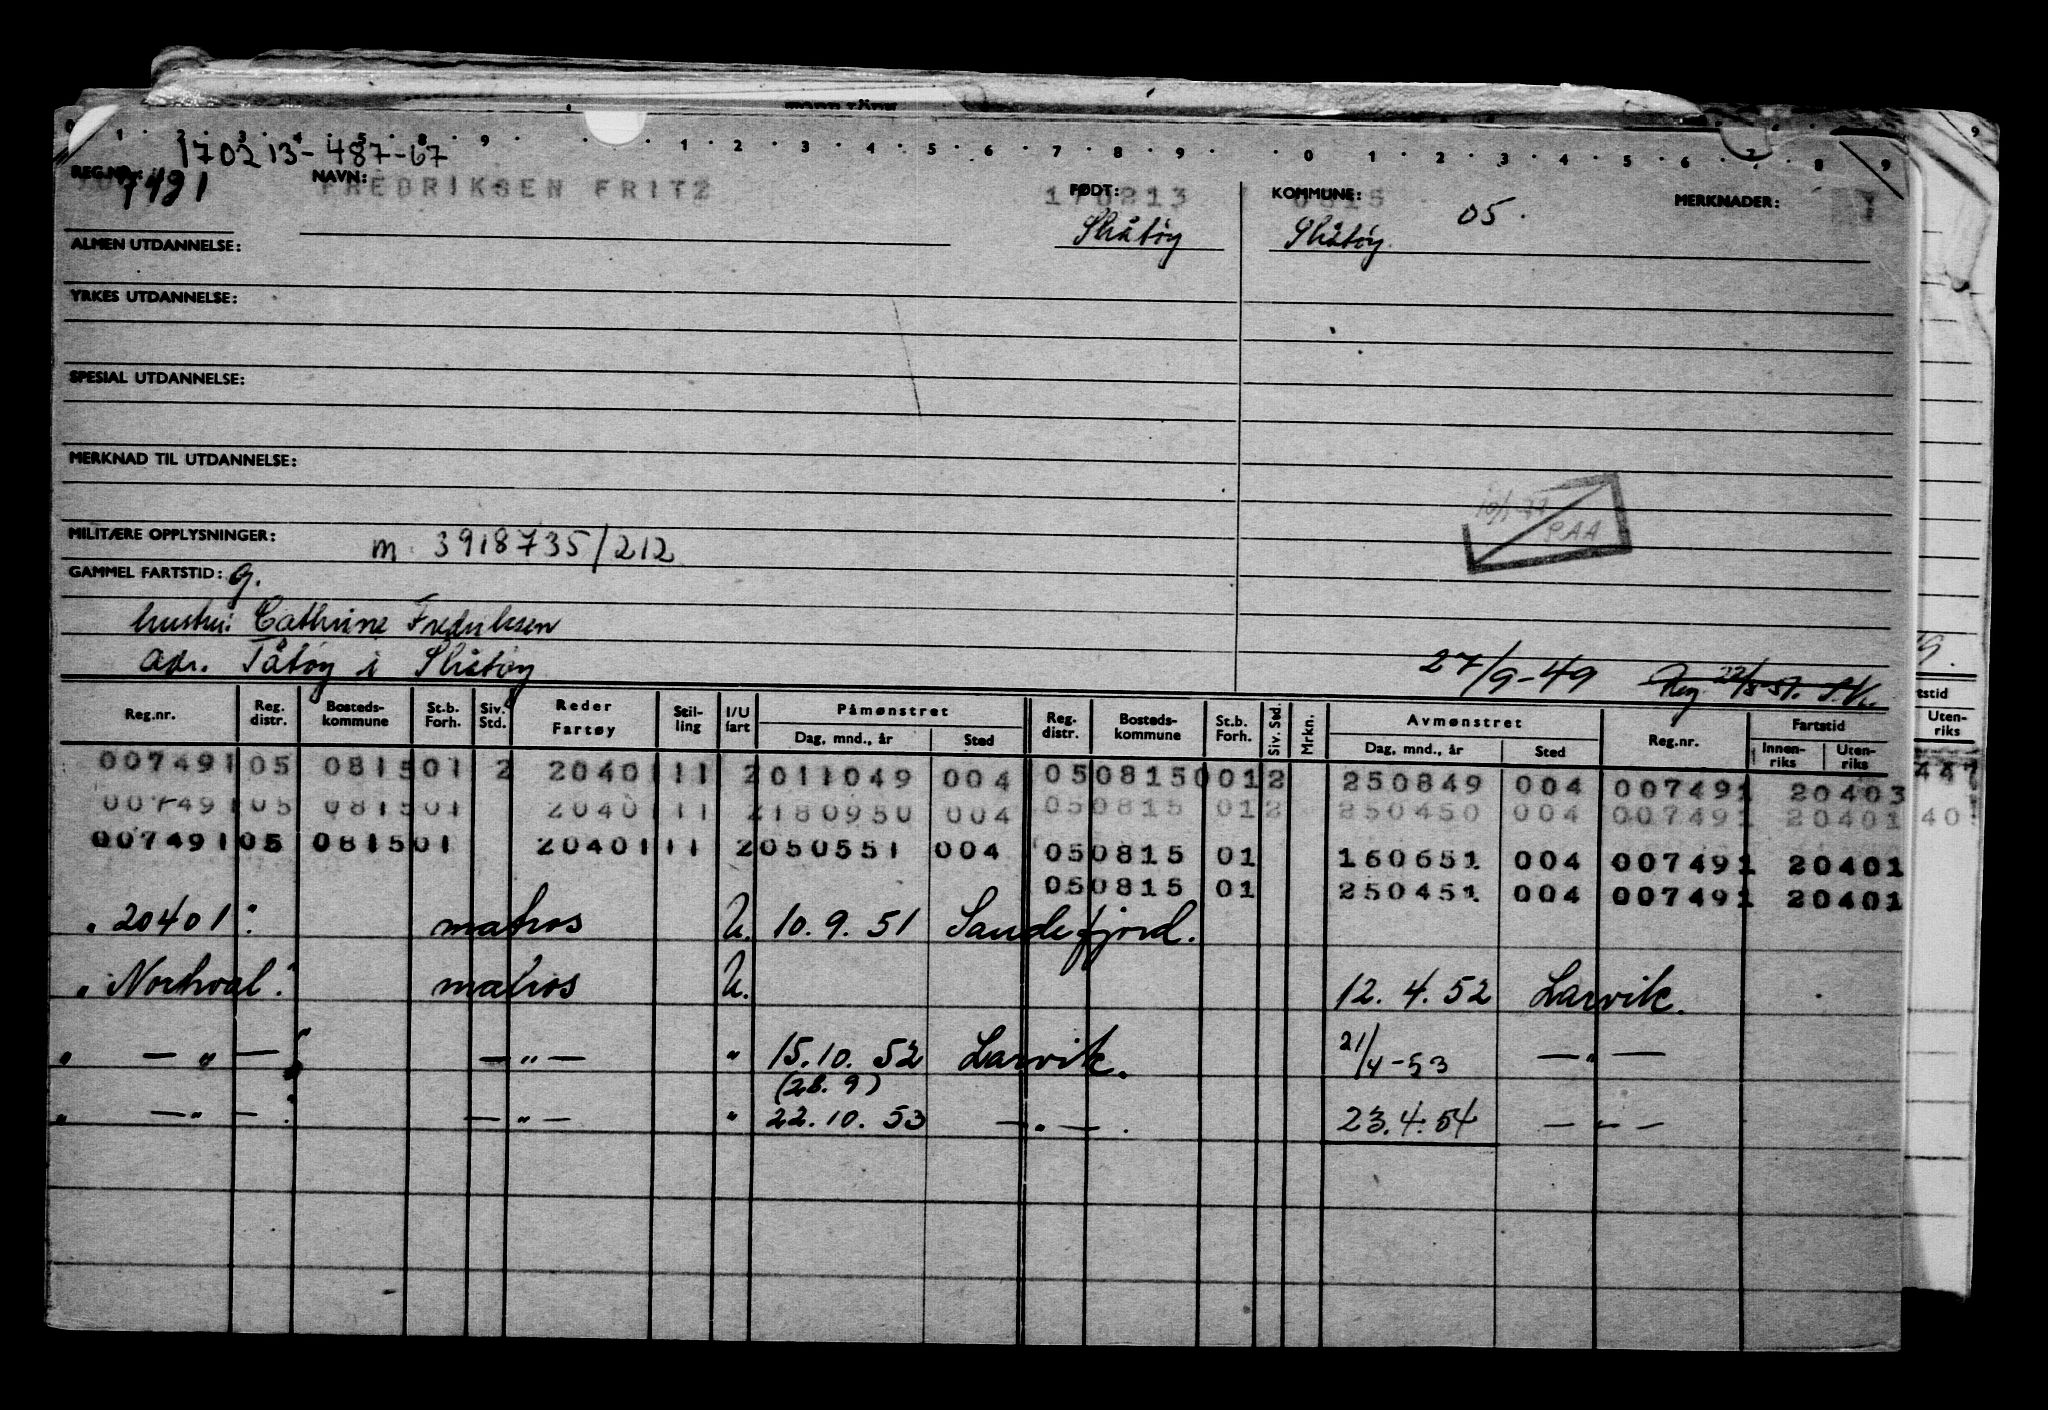 0 1 2 3 4 5 6 9 1 2 3 4 5 6 7 8 9 0 1 2 3 4 5 6 7 8 9
170213-487-67
REG.NR.: 7491 NAVN: FREDRIKSEN FRITZ FØDT: 170213 KOMMUNE: 0815 05. MERKNADER:
Skåtøy Skåtøy.
ALMEN UTDANNELSE:
YRKES UTDANNELSE:
SPESIAL UTDANNELSE:
MERKNAD TIL UTDANNELSE:
MILITÆRE OPPLYSNINGER: m. 3918735/212
GAMMEL FARTSTID: G.
hustru: Cathrine Fredriksen
adr. Tåtøy i Skåtøy 27/9-49
Reg.nr. Reg. distr. Bosteds- kommune St.b. Forh. Siv. Std. Reder Fartøy Stil- ling I/U fart Påmønstret Dag, mnd., år Sted Reg. distr. Bosteds- kommune St.b. Forh. Siv. Std. Mrkn. Avmønstret Dag, mnd., år Sted Reg.nr. Fartstid Innen- riks Uten- riks
007491 05 0815 01 2 20401 11 2 011049 004 05 08150 01 2 250849 004 007491 20403
007491 05 0815 01 20401 11 2 180950 004 05 0815 01 2 250450 004 007491 20401
007491 05 0815 01 20401 11 2 050551 004 05 0815 01 160651 004 007491 20401
05 0815 01 250451 004 007491 20401
" 20401 " matros U. 10.9.51 Sandefjord.
" Norhval " matros U. 12.4.52 Larvik.
" — " — " — " — " 15.10.52 Larvik. 21/4-53 — " —
(28.9)
" — " — " — " — " 22.10.53 — " — . 23.4.54 — " —